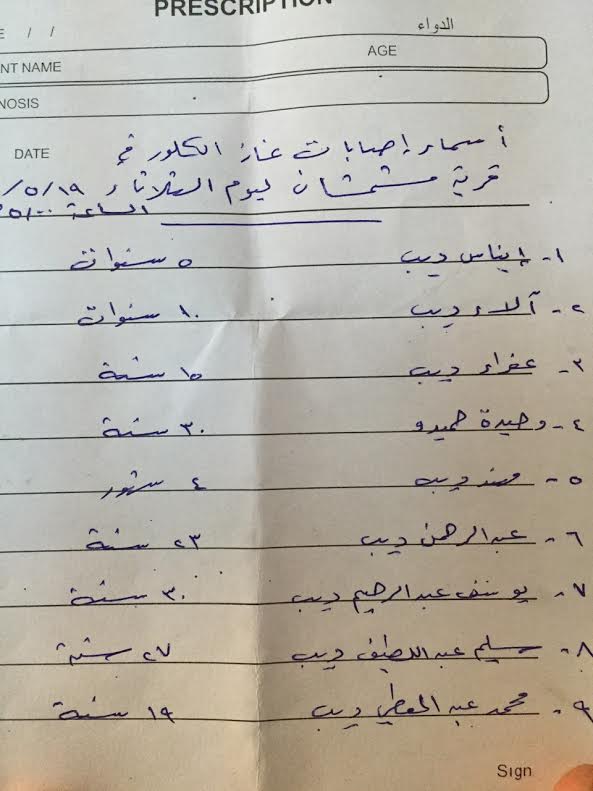 PRESCRIPTION
الدواء
E / /
AGE
NT NAME
NOSIS
DATE
أسماء إصابات غاز الكلور في
قرية مشمشان ليوم الثلاثاء ١٩/٥/
الساعة
١- إيناس ديب ٥ سنوات
٢- آلاء ديب ١٠ سنوات
٣- عفراء ديب ١٥ سنة
٤- وحيدة حميدو ٣٠ سنة
٥- مهند ديب ٤ شهور
٦- عبد الرحمن ديب ٢٣ سنة
٧- يوسف عبد الرحيم ديب ٣٠ سنة
٨- سليم عبد اللطيف ديب ٢٧ سنة
٩- محمد عبد المعطي ديب ١٩ سنة
Sign